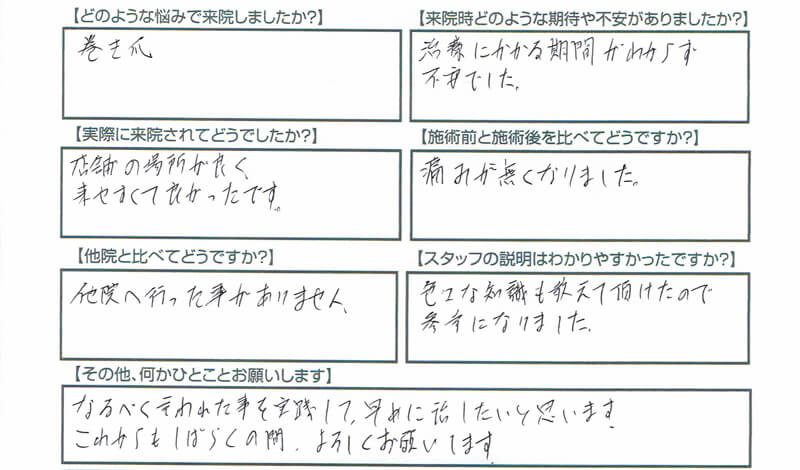 【どのような悩みで来院しましたか?】
巻き爪
【来院時どのような期待や不安がありましたか?】
治療にかかる期間がわからず
不安でした。
【実際に来院されてどうでしたか?】
店舗の場所が良く、
来やすくて良かったです。
【施術前と施術後を比べてどうですか?】
痛みが無くなりました。
【他院と比べてどうですか?】
他院へ行った事がありません。
【スタッフの説明はわかりやすかったですか?】
色々な知識も教えて頂けたので
参考になりました。
【その他、何かひとことお願いします】
なるべく言われた事を実践して、早めに治したいと思います。
これからもしばらくの間、よろしくお願いします。